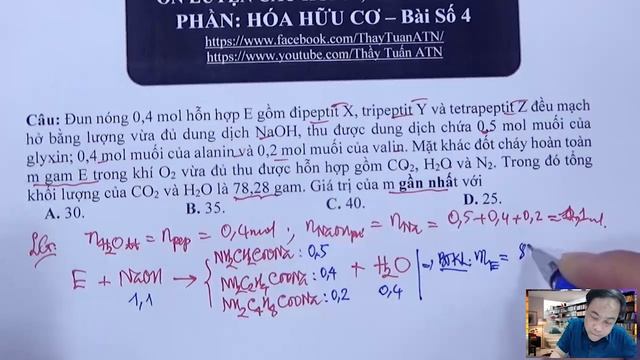 ÔN LUYỆN CÂU
PHẦN: HÓA HỮU CƠ – Bài Số 4
https://www.facebook.com/ThayTuanATN/
https://www.youtube.com/Thầy Tuấn ATN
Câu: Đun nóng 0,4 mol hỗn hợp E gồm đipeptit X, tripeptit Y và tetrapeptit Z đều mạch
hở bằng lượng vừa đủ dung dịch NaOH, thu được dung dịch chứa 0,5 mol muối của
glyxin; 0,4 mol muối của alanin và 0,2 mol muối của valin. Mặt khác đốt cháy hoàn toàn
m gam E trong khí O2 vừa đủ thu được hỗn hợp gồm CO2, H2O và N2. Trong đó tổng
khối lượng của CO2 và H2O là 78,28 gam. Giá trị của m gần nhất với
A. 30. B. 35. C. 40. D. 25.
nH2O = npep = 0,4 mol; nNaOH pứ = nNa = 0,5+0,4+0,2 = 1,1 mol.
NH2CH2COONa: 0,5
E + NaOH → NH2C2H4COONa: 0,4 + H2O ⇒ BTKL: mE =
1,1 0,4
NH2C4H8COONa: 0,2